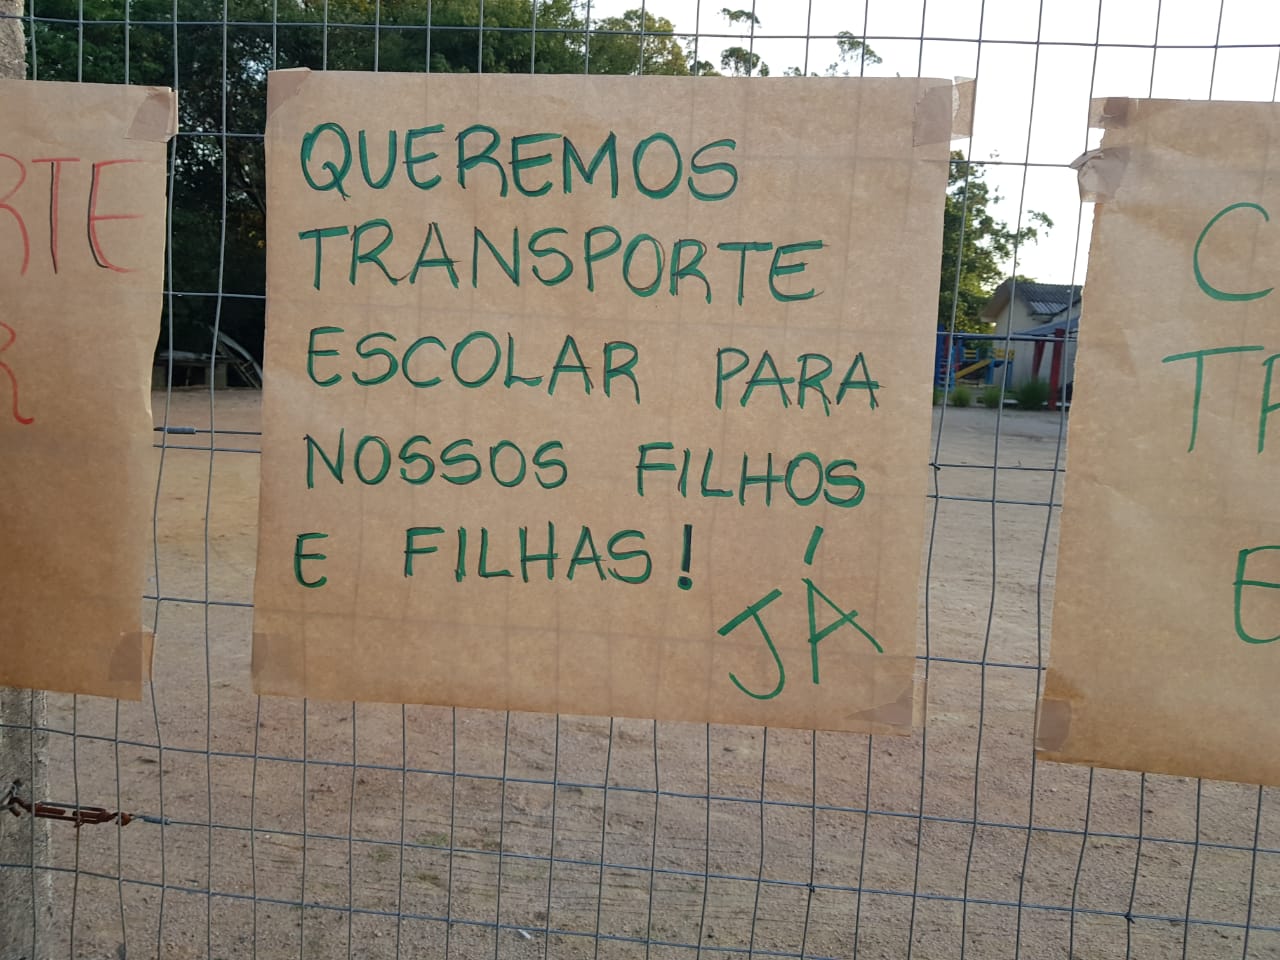 QUEREMOS
TRANSPORTE
ESCOLAR PARA
NOSSOS FILHOS
E FILHAS!
JÁ